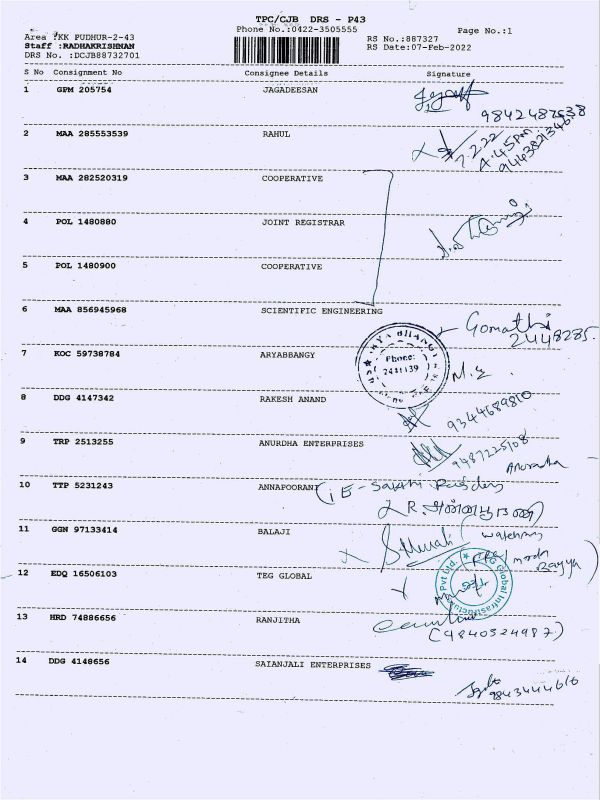 TPC/CJB DRS - P43
Area :KK PUDHUR-2-43 Phone No.:0422-3505555 Page No.:1
Staff :RADHAKRISHNAN RS No.:887327
DRS No. :DCJB88732701 RS Date:07-Feb-2022
S No Consignment No Consignee Details Signature
1 GPM 205754 JAGADEESAN
9842487638
2 MAA 285553539 RAHUL
4.45pm
3 MAA 282520319 COOPERATIVE
4 POL 1480880 JOINT REGISTRAR
5 POL 1480900 COOPERATIVE
6 MAA 856945968 SCIENTIFIC ENGINEERING
Gomathi
2448285.
7 KOC 59738784 ARYABBANGY
Phone:
8 DDG 4147342 RAKESH ANAND
9344689810
9 TRP 2513255 ANURDHA ENTERPRISES
9487225108
Anuradha
10 TTP 5231243 ANNAPOORANI
11 GGN 97133414 BALAJI
12 EDQ 16506103 TEG GLOBAL
Global Infrastructure Pvt Ltd.
13 HRD 74886656 RANJITHA
(9840324987)
14 DDG 4148656 SAIANJALI ENTERPRISES
9843444610